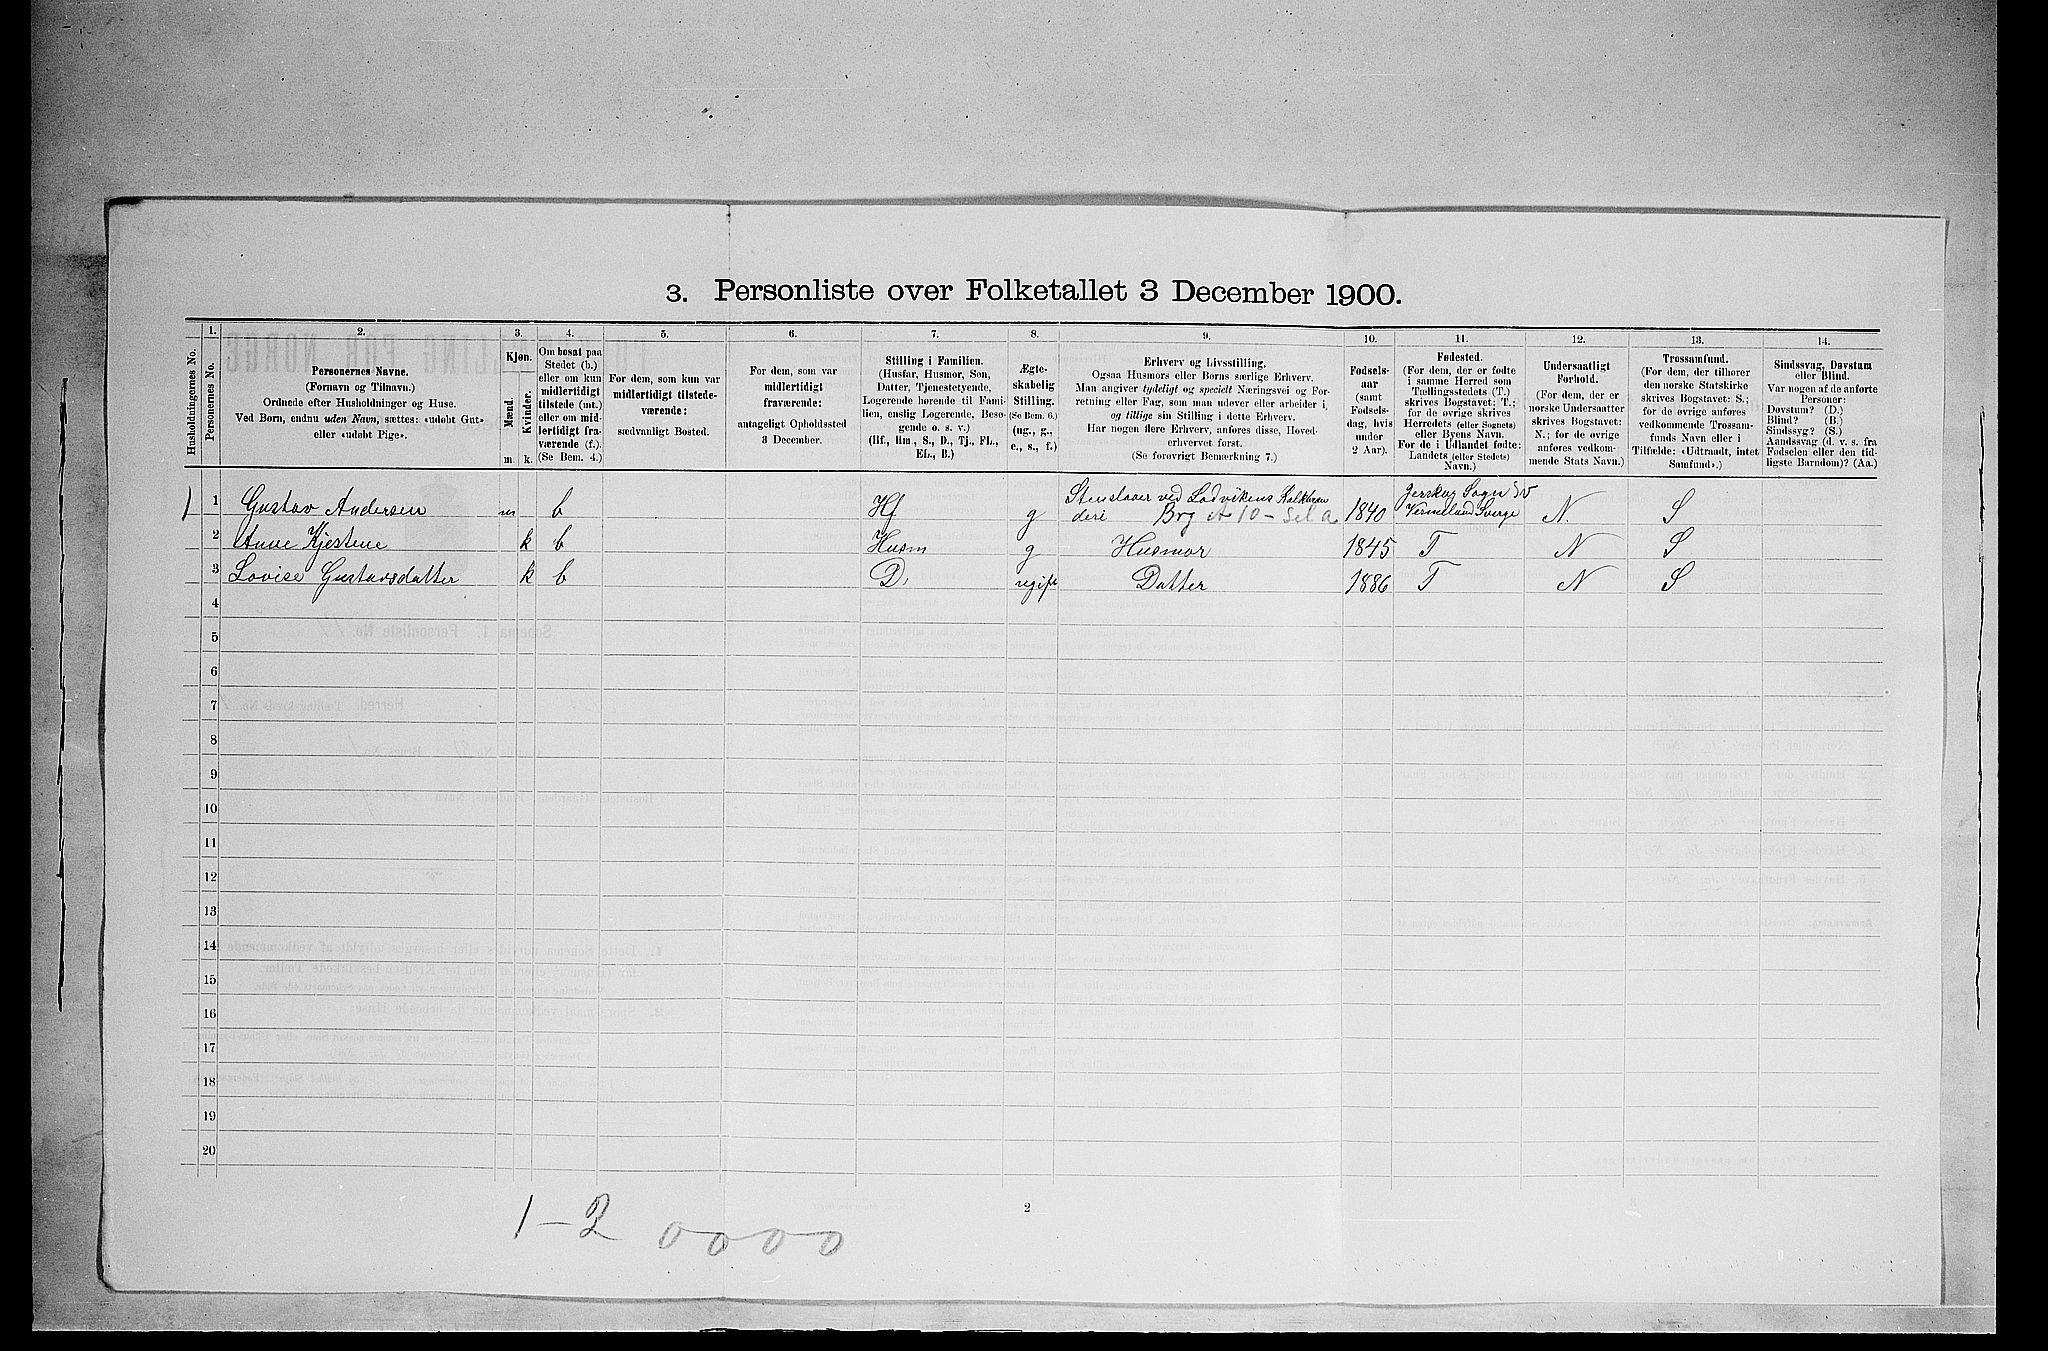 3. Personliste over Folketallet 3 December 1900.
1. 2. 3. 4. 5. 6. 7. 8. 9. 10. 11. 12. 13. 14.
Husholdningernes No.
Personernes No.
Personernes Navne.
(Fornavn og Tilnavn.)
Ordnede efter Husholdninger og Huse.
Ved Børn, endnu uden Navn, sættes: «udøbt Gut»
eller «udøbt Pige».
Kjøn.
Mænd.
Kvinder.
m. k.
Om bosat paa
Stedet (b.)
eller om kun
midlertidigt
tilstede (mt.)
eller om mid-
lertidigt fra-
værende (f.).
(Se Bem. 4.)
For dem, som kun var
midlertidigt tilstede-
værende:
sædvanligt Bosted.
For dem, som var
midlertidigt
fraværende:
antageligt Opholdssted
3 December.
Stilling i Familien.
(Husfar, Husmor, Søn,
Datter, Tjenestetyende,
Logerende hørende til Fami-
lien, enslig Logerende, Besø-
gende o. s. v.)
(Hf., Hm., S., D., Tj., FL.,
EL., B.)
Ægte-
skabelig
Stilling.
(Se Bem. 6.)
(ug., g.,
e., s., f.)
Erhverv og Livsstilling.
Ogsaa Husmors eller Børns særlige Erhverv.
Man angiver tydeligt og specielt Næringsvei og For-
retning eller Fag, som man udøver eller arbeider i,
og tillige sin Stilling i dette Erhverv.
Har nogen flere Erhverv, anføres disse, Hoved-
erhvervet først.
(Se forøvrigt Bemærkning 7.)
Fødsels-
aar
(samt
Fødsels-
dag, hvis
under
2 Aar).
Fødested.
(For dem, der er fødte
i samme Herred som
Tællingsstedets (T.)
skrives Bogstavet: T.;
for de øvrige skrives
Herredets (eller Sognets)
eller Byens Navn.
For de i Udlandet fødte:
Landets (eller Stedets)
Navn.)
Undersaatligt
Forhold.
(For dem, der er
norske Undersaatter
skrives Bogstavet:
N.; for de øvrige
anføres vedkom-
mende Stats Navn.)
Trossamfund.
(For dem, der tilhører
den norske Statskirke
skrives Bogstavet: S.;
for de øvrige anføres
vedkommende Trossam-
funds Navn eller i
Tilfælde: «Udtraadt, intet
Samfund».)
Sindssvag, Døvstum
eller Blind.
Var nogen af de anførte
Personer:
Døvstum? (D.)
Blind? (B.)
Sindssyg? (S.)
Aandssvag (d. v. s. fra
Fødselen eller den tid-
ligste Barndom)? (Aa.)
Stenslaaer ved Lodvikens Kalkbræn
Sogn
1 1 Gustav Andersen m b Hf g deri Brg 1840 Vermeland Sverge N. S
2 Anne Kjestene k b Husm g Husmor 1845 T N S
3 Lovise Gustavsdatter k b D. ugift Datter 1886 T N S
4
5
6
7
8
9
10
11
12
13
14
15
16
17
18
19
20
1 - 2 0 0 0 0
2